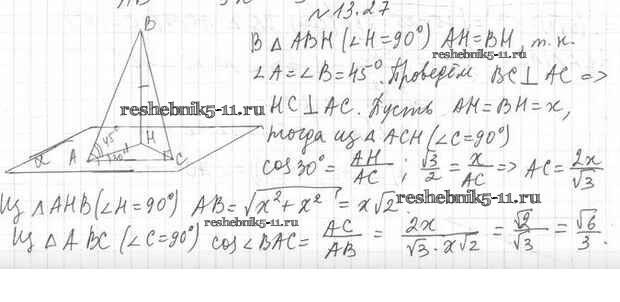 №13.27
В △ ABH (∠H=90°) AH=BH, т.к.
∠A=∠B=45°. Проведём BC⊥AC =>
HC⊥AC. Пусть AH=BH=x,
тогда из △ ACH (∠C=90°)
cos30° = AH/AC ; √3/2 = x/AC => AC = 2x/√3
Из △ AHB (∠H=90°) AB = √(x²+x²) = x√2.
Из △ ABC (∠C=90°) cos∠BAC = AC/AB = 2x/(√3·x√2) = √2/√3 = √6/3.
B
45°
H
A
30°
C
α
reshebnik5-11.ru
reshebnik5-11.ru
reshebnik5-11.ru